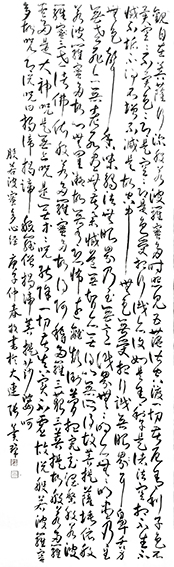 觀自在菩薩行深般若波羅蜜多時照見五蘊皆空度一切苦厄舍利子色不
異空空不異色色即是空空即是色受想行識亦復如是舍利子是諸法空相不生不
滅不垢不淨不增不減是故空中無色無受想行識無眼耳鼻舌身意
無色聲香味觸法無眼界乃至無意識界無無明亦無無明盡乃至
無老死亦無老死盡無苦集滅道無智亦無得以無所得故菩提薩埵依般
若波羅蜜多故心無罣礙無罣礙故無有恐怖遠離顛倒夢想究竟涅
槃三世諸佛依般若波羅蜜多故得阿耨多羅三藐三菩提故知般若波羅蜜
多是大神咒是大明咒是無上咒是無等等咒能除一切苦真實不虛故說般若波羅蜜
多咒即說咒曰揭諦揭諦波羅揭諦波羅僧揭諦菩提薩婆訶
般若波羅蜜多心經 庚子仲春 書於大連 張